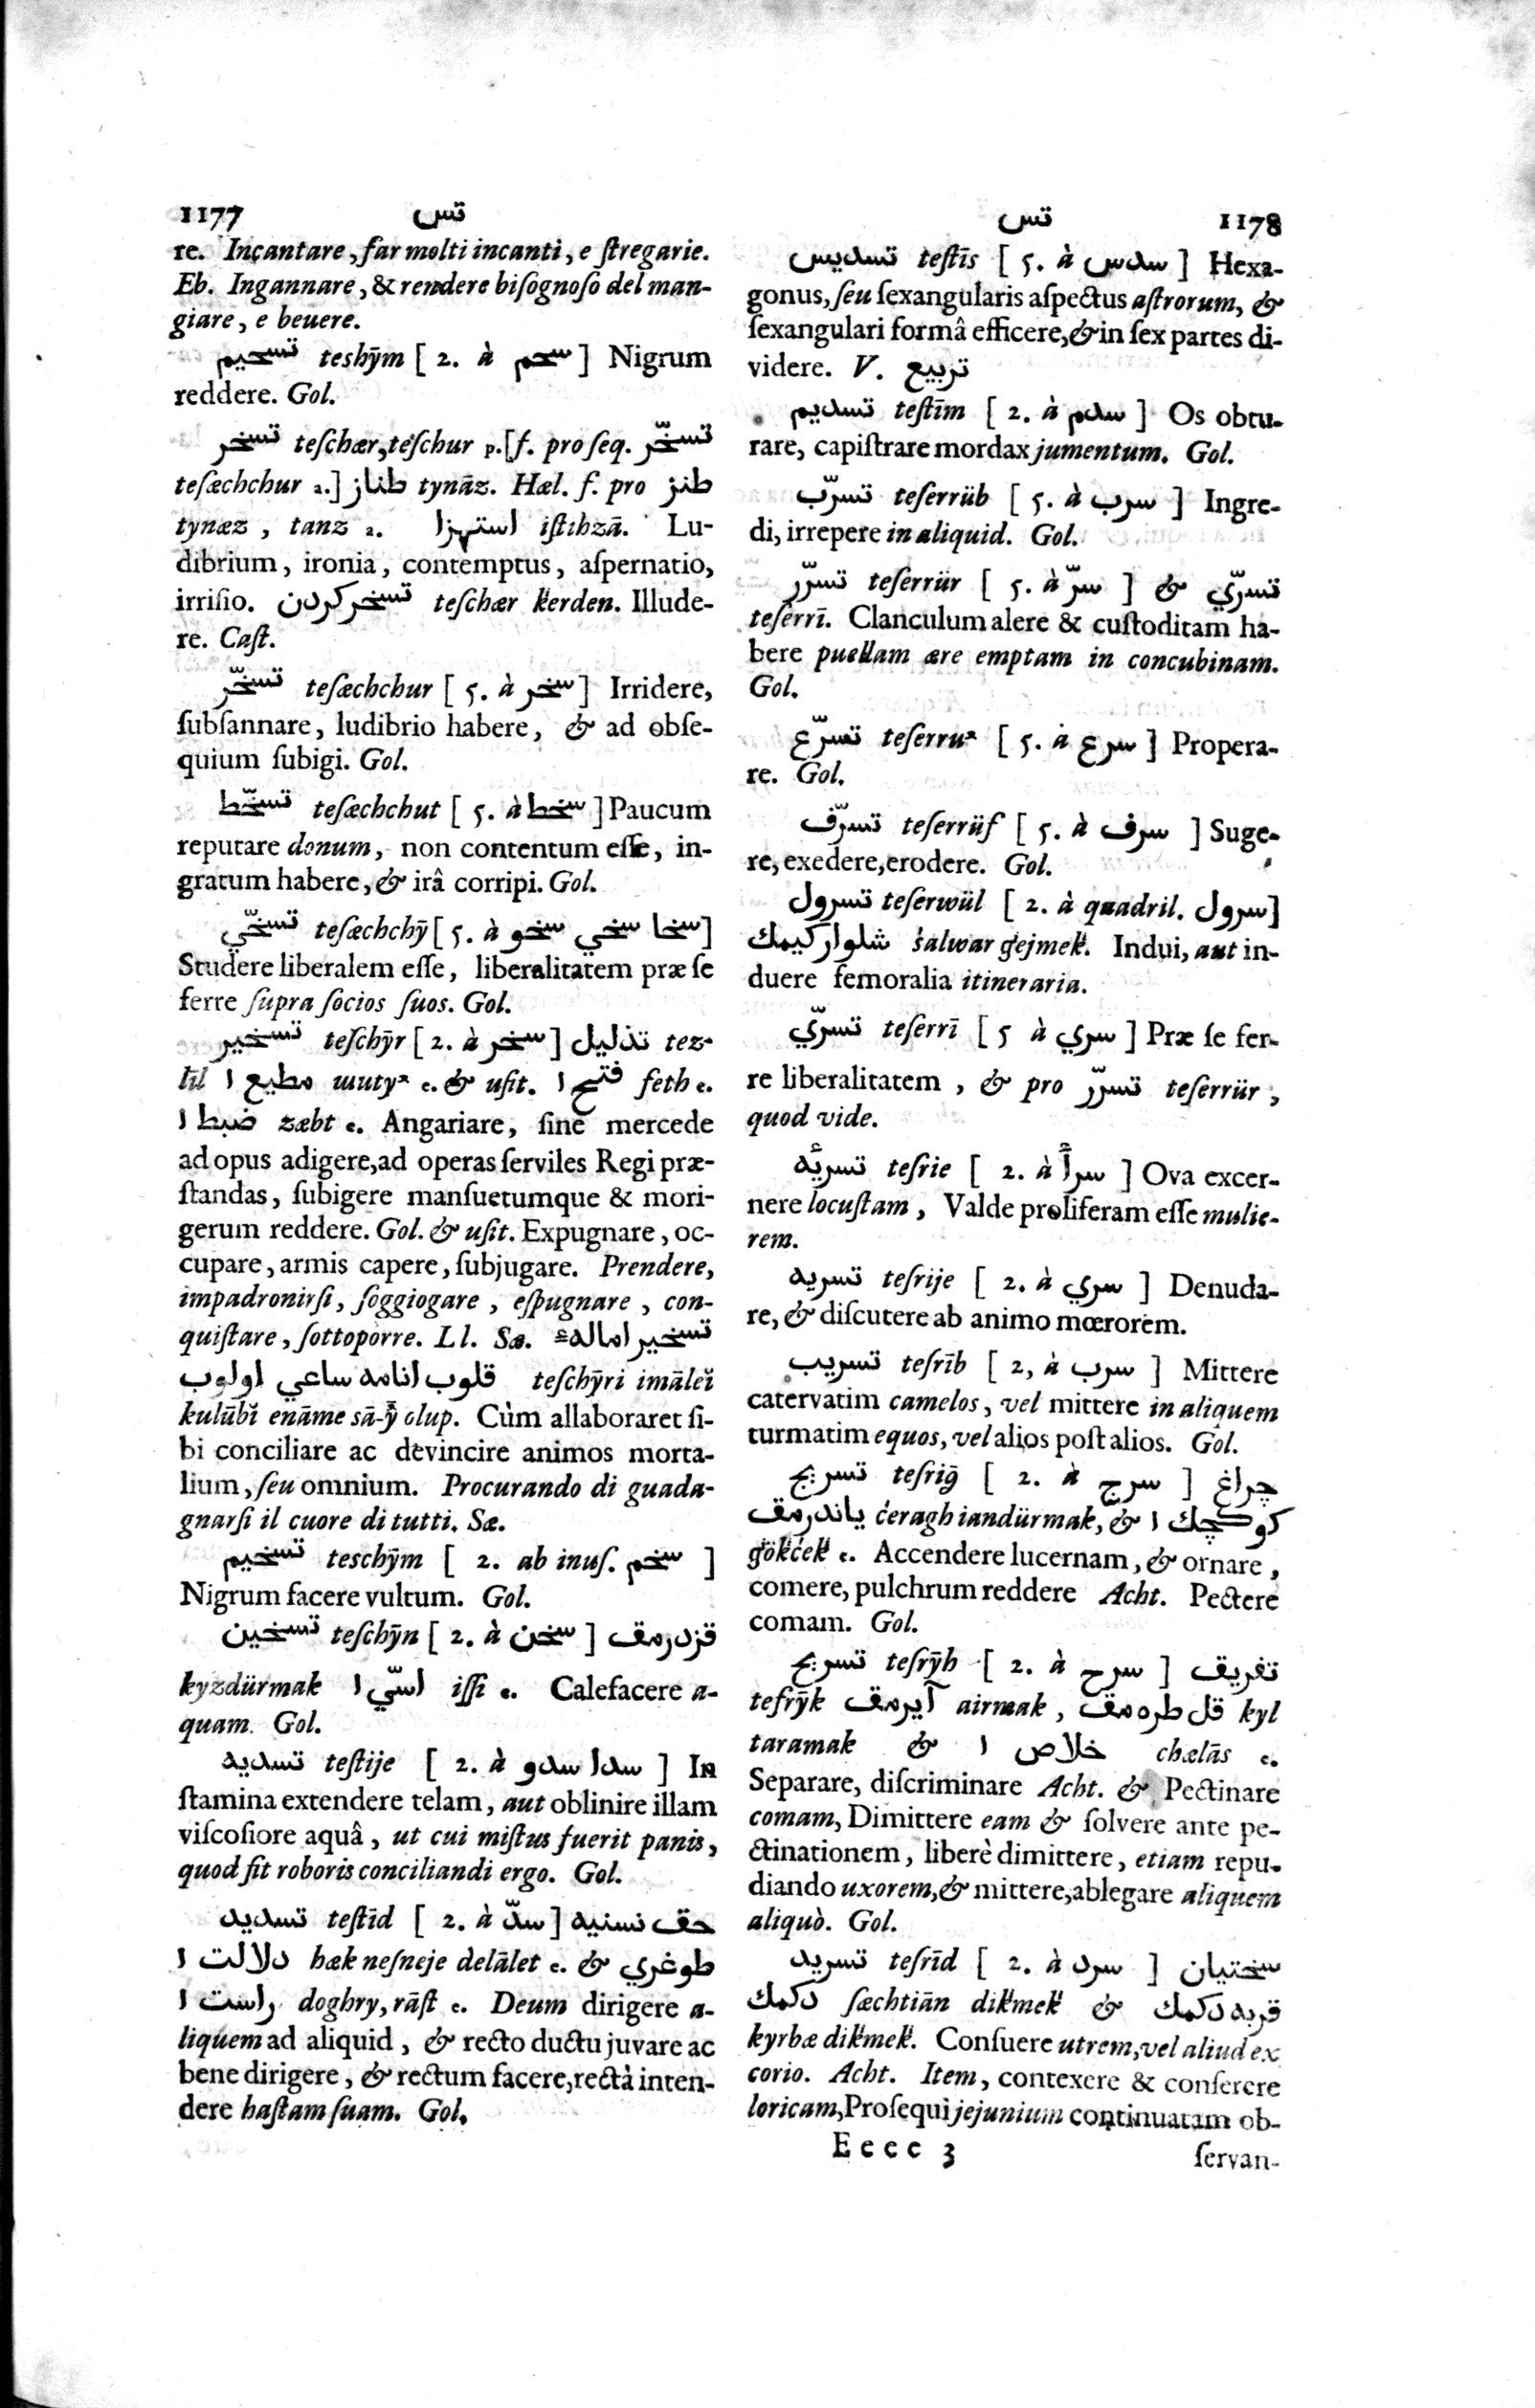 1177 تس
re. Incantare, far molti incanti, e ſtregarie.
Eb. Ingannare, & rendere biſognoſo del man-
giare, e beuere.
تسحيم teshȳm [ 2. à سحم ] Nigrum
reddere. Gol.
تسخر teſchær, teſchur p. [f. pro ſeq. تسخّر
teſæchchur a.] طناز tynāz. Hæl. f. pro طنز
tynæz, tanz a. استهزا iſtihzā. Lu-
dibrium, ironia, contemptus, aſpernatio,
irriſio. تسخر كردن teſchær kerden. Illude-
re. Caſt.
تسخّر teſæchchur [ 5. à سخر ] Irridere,
ſubſannare, ludibrio habere, & ad obſe-
quium ſubigi. Gol.
تسخّط teſæchchut [ 5. à سخط ] Paucum
reputare donum, non contentum eſſe, in-
gratum habere, & irâ corripi. Gol.
تسخّي teſæchchȳ [ 5. à سخا سخي سخو ]
Studere liberalem eſſe, liberalitatem præ ſe
ferre ſupra ſocios ſuos. Gol.
تسخير teſchȳr [ 2. à سخر ] تذليل tez-
līl مطيع ا muty e. & uſit. فتح ا feth e.
ضبط ا zæbt e. Angariare, ſine mercede
ad opus adigere, ad operas ſerviles Regi præ-
ſtandas, ſubigere manſuetumque & mori-
gerum reddere. Gol. & uſit. Expugnare, oc-
cupare, armis capere, ſubjugare. Prendere,
impadronirſi, ſoggiogare, eſpugnare, con-
quiſtare, ſottoporre. Ll. Sæ. تسخير امالهء
قلوب انامه ساعي اولوب teſchȳri imāleï
kulūbï enāme sā-ȳ olup. Cùm allaboraret ſi-
bi conciliare ac devincire animos morta-
lium, ſeu omnium. Procurando di guada-
gnarſi il cuore di tutti. Sæ.
تسخيم teschȳm [ 2. ab inuſ. سخم ]
Nigrum facere vultum. Gol.
تسخين teſchȳn [ 2. à سخن ] قزدرمق
kyzdürmak اسّي ا iſſi e. Calefacere a-
quam. Gol.
تسديه teſtije [ 2. à سدا سدو ] In
ſtamina extendere telam, aut oblinire illam
viſcoſiore aquâ, ut cui miſtus fuerit panis,
quod fit roboris conciliandi ergo. Gol.
تسديد teſtīd [ 2. à سدّ ] حق نسنيه
دلالت ا hæk neſneje delālet e. & طوغري
راست ا doghry, rāſt e. Deum dirigere a-
liquem ad aliquid, & recto ductu juvare ac
bene dirigere, & rectum facere, rectà inten-
dere haſtam ſuam. Gol.
تس 1178
تسديس teſtīs [ 5. à سدس ] Hexa-
gonus, ſeu ſexangularis aſpectus aſtrorum, &
ſexangulari formâ efficere, & in ſex partes di-
videre. V. تربيع
تسديم teſtīm [ 2. à سدم ] Os obtu-
rare, capiſtrare mordax jumentum. Gol.
تسرّب teſerrüb [ 5. à سرب ] Ingre-
di, irrepere in aliquid. Gol.
تسرّر teſerrür [ 5. à سرّ ] & تسرّي
teſerrī. Clanculum alere & cuſtoditam ha-
bere puellam ære emptam in concubinam.
Gol.
تسرّع teſerru [ 5. à سرع ] Propera-
re. Gol.
تسرّف teſerrüf [ 5. à سرف ] Suge-
re, exedere, erodere. Gol.
تسرول teſerwül [ 2. à quadril. سرول ]
شلوار كيمك śalwar gejmek. Indui, aut in-
duere femoralia itineraria.
تسرّي teſerrī [ 5 à سري ] Præ ſe fer-
re liberalitatem, & pro تسرّر teſerrür,
quod vide.
تسرئه teſrie [ 2. à سرأ ] Ova excer-
nere locuſtam, Valde proliferam eſſe mulie-
rem.
تسريه teſrije [ 2. à سري ] Denuda-
re, & diſcutere ab animo mœrorem.
تسريب teſrīb [ 2, à سرب ] Mittere
catervatim camelos, vel mittere in aliquem
turmatim equos, vel alios poſt alios. Gol.
تسريج teſriḡ [ 2. à سرج ] چراغ
ياندرمق ćeragh iandürmak, & كوكچك ا
gökćek e. Accendere lucernam, & ornare,
comere, pulchrum reddere Acht. Pectere
comam. Gol.
تسريح teſrȳh [ 2. à سرح ] تفريق
tefrȳk آيرمق airmak, قل طره مق kyl
taramak & خلاص ا chælās e.
Separare, diſcriminare Acht. & Pectinare
comam, Dimittere eam & ſolvere ante pe-
ctinationem, liberè dimittere, etiam repu-
diando uxorem, & mittere, ablegare aliquem
aliquò. Gol.
تسريد teſrīd [ 2. à سرد ] سختيان
دكمك ſæchtiān dikmek & قربه دكمك
kyrbæ dikmek. Conſuere utrem, vel aliud ex
corio. Acht. Item, contexere & conſerere
loricam, Proſequi jejunium continuatam ob-
Eeee 3 ſervan-